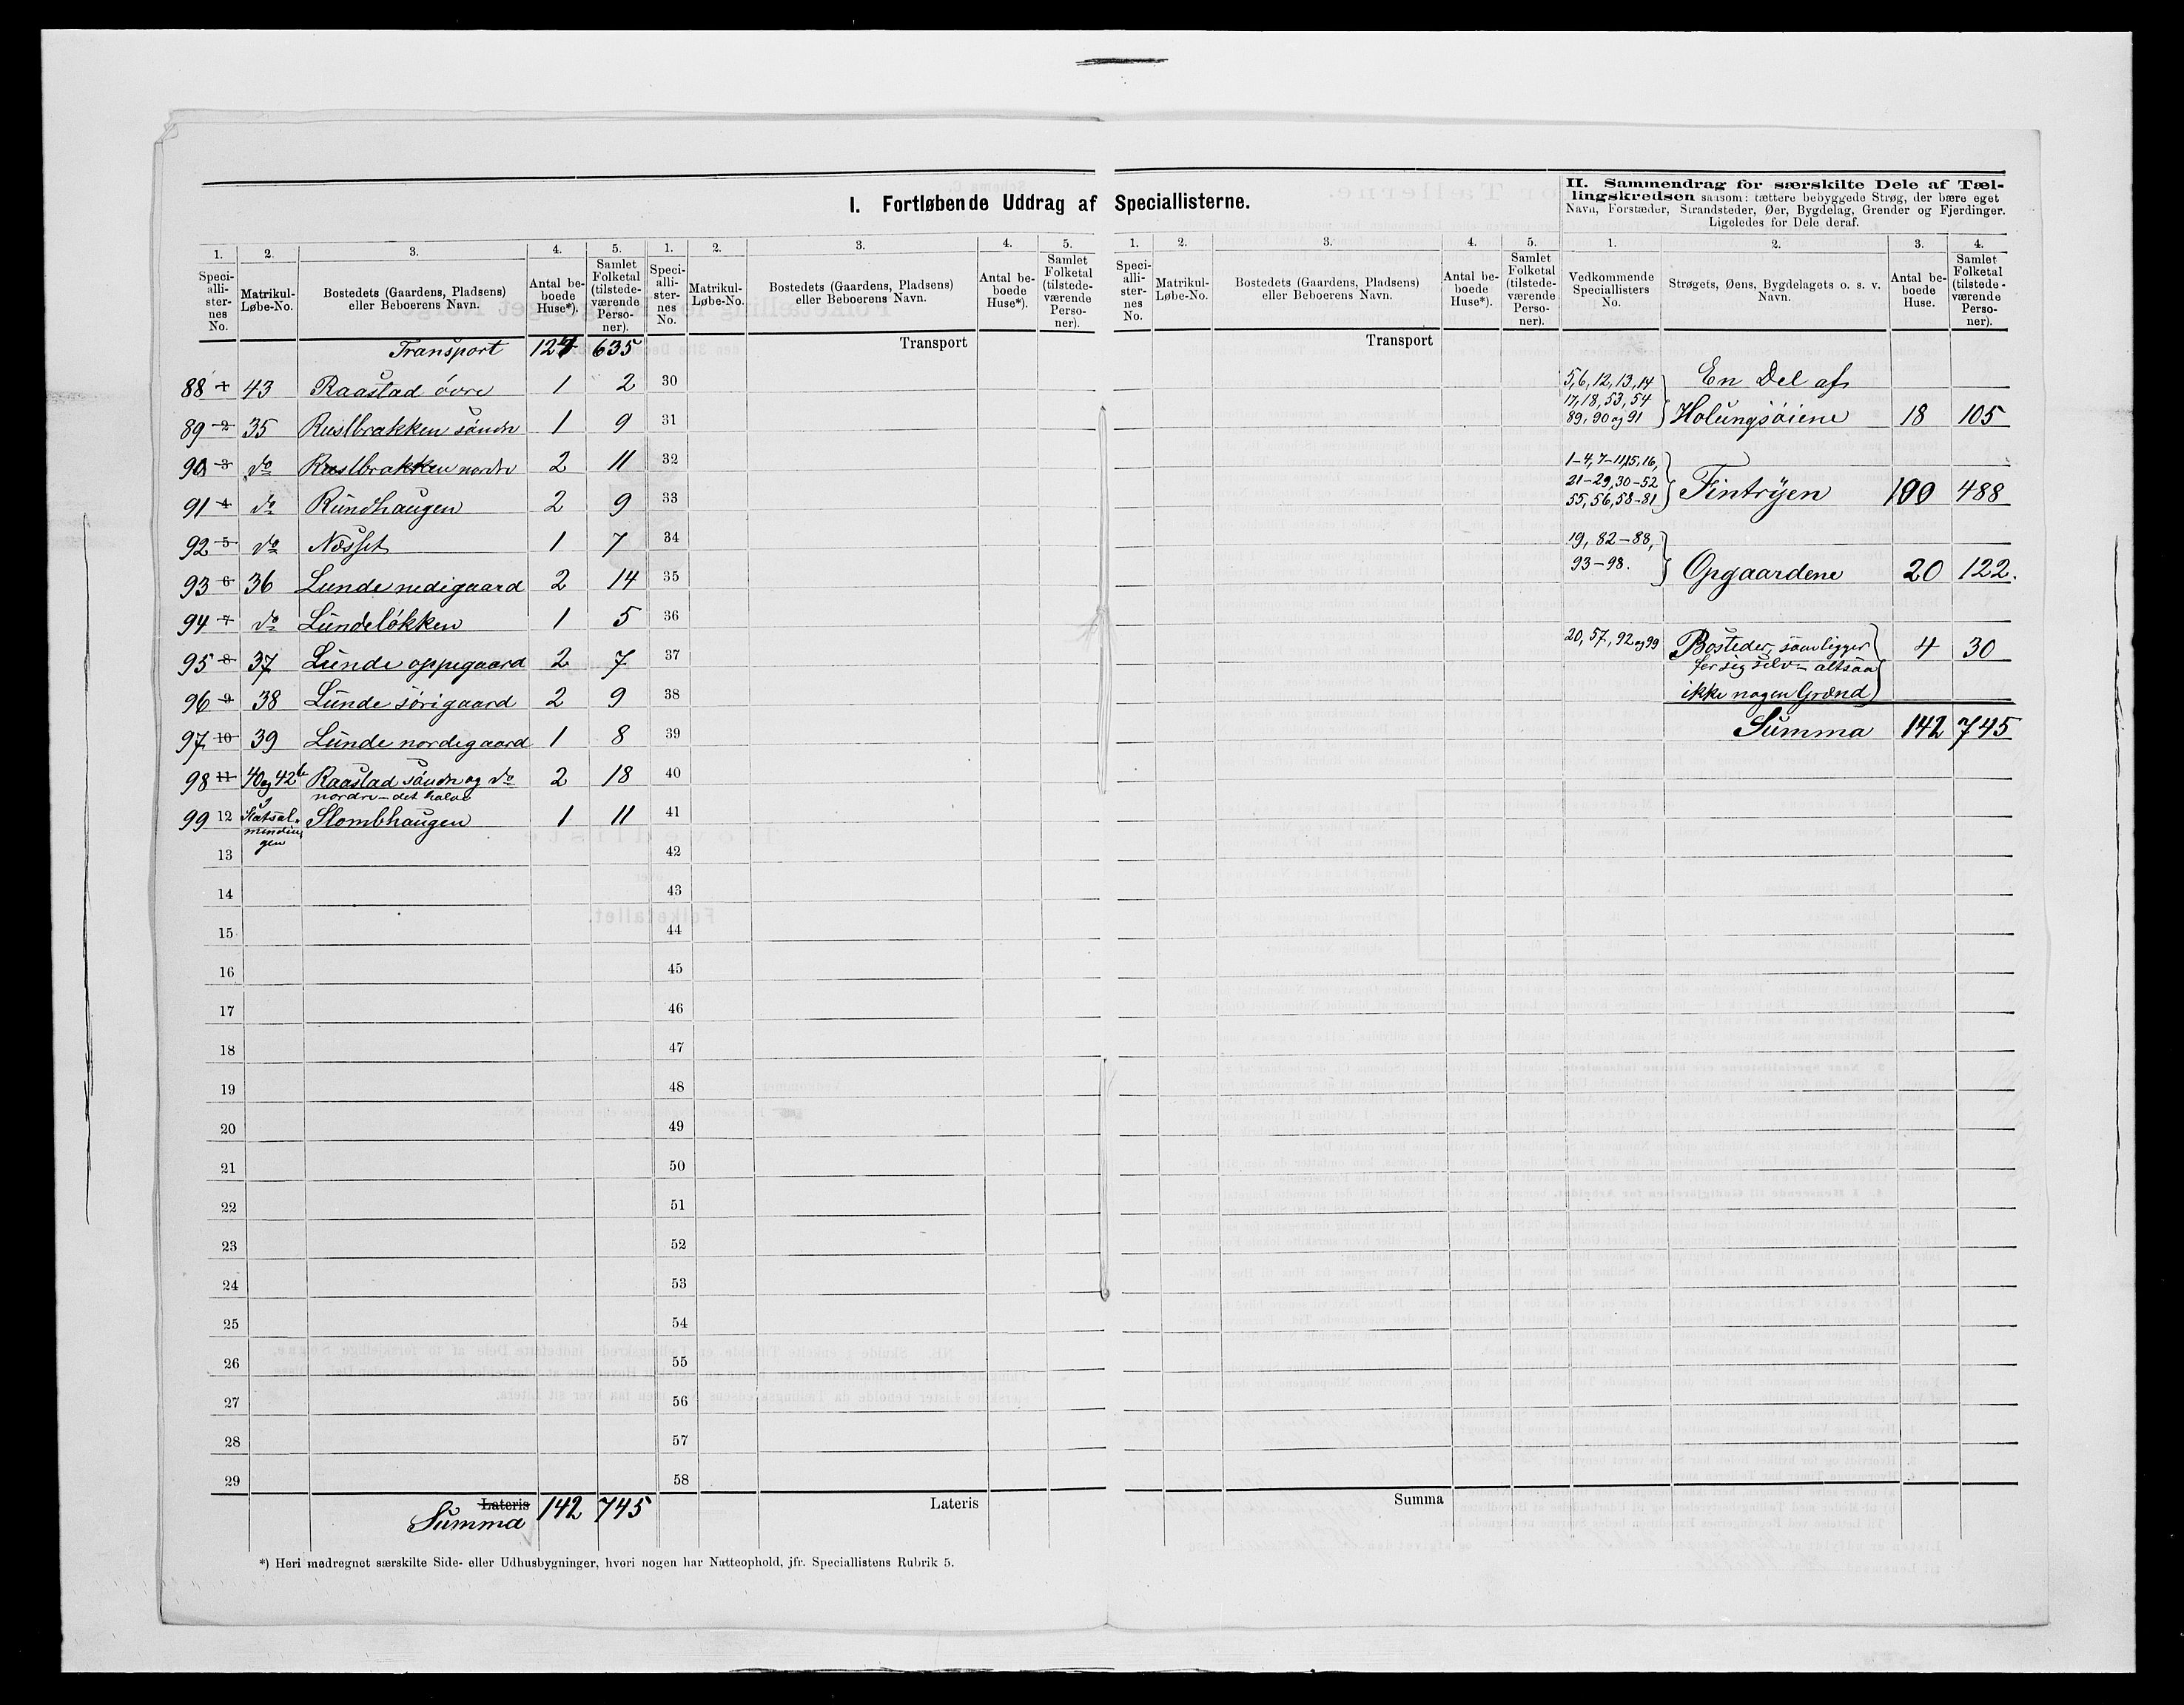 I. Fortløbende Uddrag af Speciallisterne.
II. Sammendrag for særskilte Dele af Tæl-
lingskredsen saasom: tættere bebyggede Strøg, der bære eget
Navn, Forstæder, Strandsteder, Øer, Bygdelag, Grender og Fjerdinger.
Ligeledes for Dele deraf.
1. 2. 3. 4. 5. 1. 2. 3. 4. 5. 1. 2. 3. 4. 5. 1. 2. 3. 4.
Speci-alli-ster-nes No. Matrikul-Løbe-No. Bostedets (Gaardens, Pladsens) eller Beboerens Navn. Antal be-boede Huse*). Samlet Folketal (tilstede-værende Perso-ner).
Speci-alli-ster-nes No. Matrikul-Løbe-No. Bostedets (Gaardens, Pladsens) eller Beboerens Navn. Antal be-boede Huse*). Samlet Folketal (tilstede-værende Perso-ner).
Speci-alli-ster-nes No. Matrikul-Løbe-No. Bostedets (Gaardens, Pladsens) eller Beboerens Navn. Antal be-boede Huse*). Samlet Folketal (tilstede-værende Perso-ner).
Vedkommende Speciallisters No. Strøgets, Øens, Bygdelagets o. s. v. Navn. Antal be-boede Huse. Samlet Folketal (tilstede-værende Perso-ner).
Transport 127 635 Transport Transport
88 1 43 Raastad övre 1 2 30
89 2 35 Rustbrakken söndre 1 9 31
90 3 do Rustbrakken nordre 2 11 32
91 4 do Rundhaugen 2 9 33
92 5 do Næsset 1 7 34
93 6 36 Lunde nedigaard 2 14 35
94 7 do Lundelökken 1 5 36
95 8 37 Lunde oppegaard 2 7 37
96 9 38 Lunde sörigaard 2 9 38
97 10 39 Lunde nordegaard 1 8 39
98 11 40 og 42b Raastad söndre og do 2 18 40
nordre – det halve
99 12 Statsal-mindingen Slombhaugen 1 11 41
13 42
14 43
15 44
16 45
17 46
18 47
19 48
20 49
21 50
22 51
23 52
24 53
25 54
26 55
27 56
28 57
29 58
Lateris 142 745 Lateris Summa
Summa
*) Heri medregnet særskilte Side- eller Udhusbygninger, hvori nogen har Natteophold, jfr. Speciallistens Rubrik 5.
5, 6, 12, 13, 14 En Del af
17, 18, 53, 54
89, 90 og 91 Holungsöiene 18 105
1–4, 7–11, 15, 16,
21–29, 30–52
55, 56, 58–81 Tintrÿen 100 488
19, 82–88,
93–98. Opgaardene 20 122.
20, 57, 92 og 99 Bosteder som ligger 4 30
for sig selv – altsaa
ikke nogen Grænd
Summa 142 745